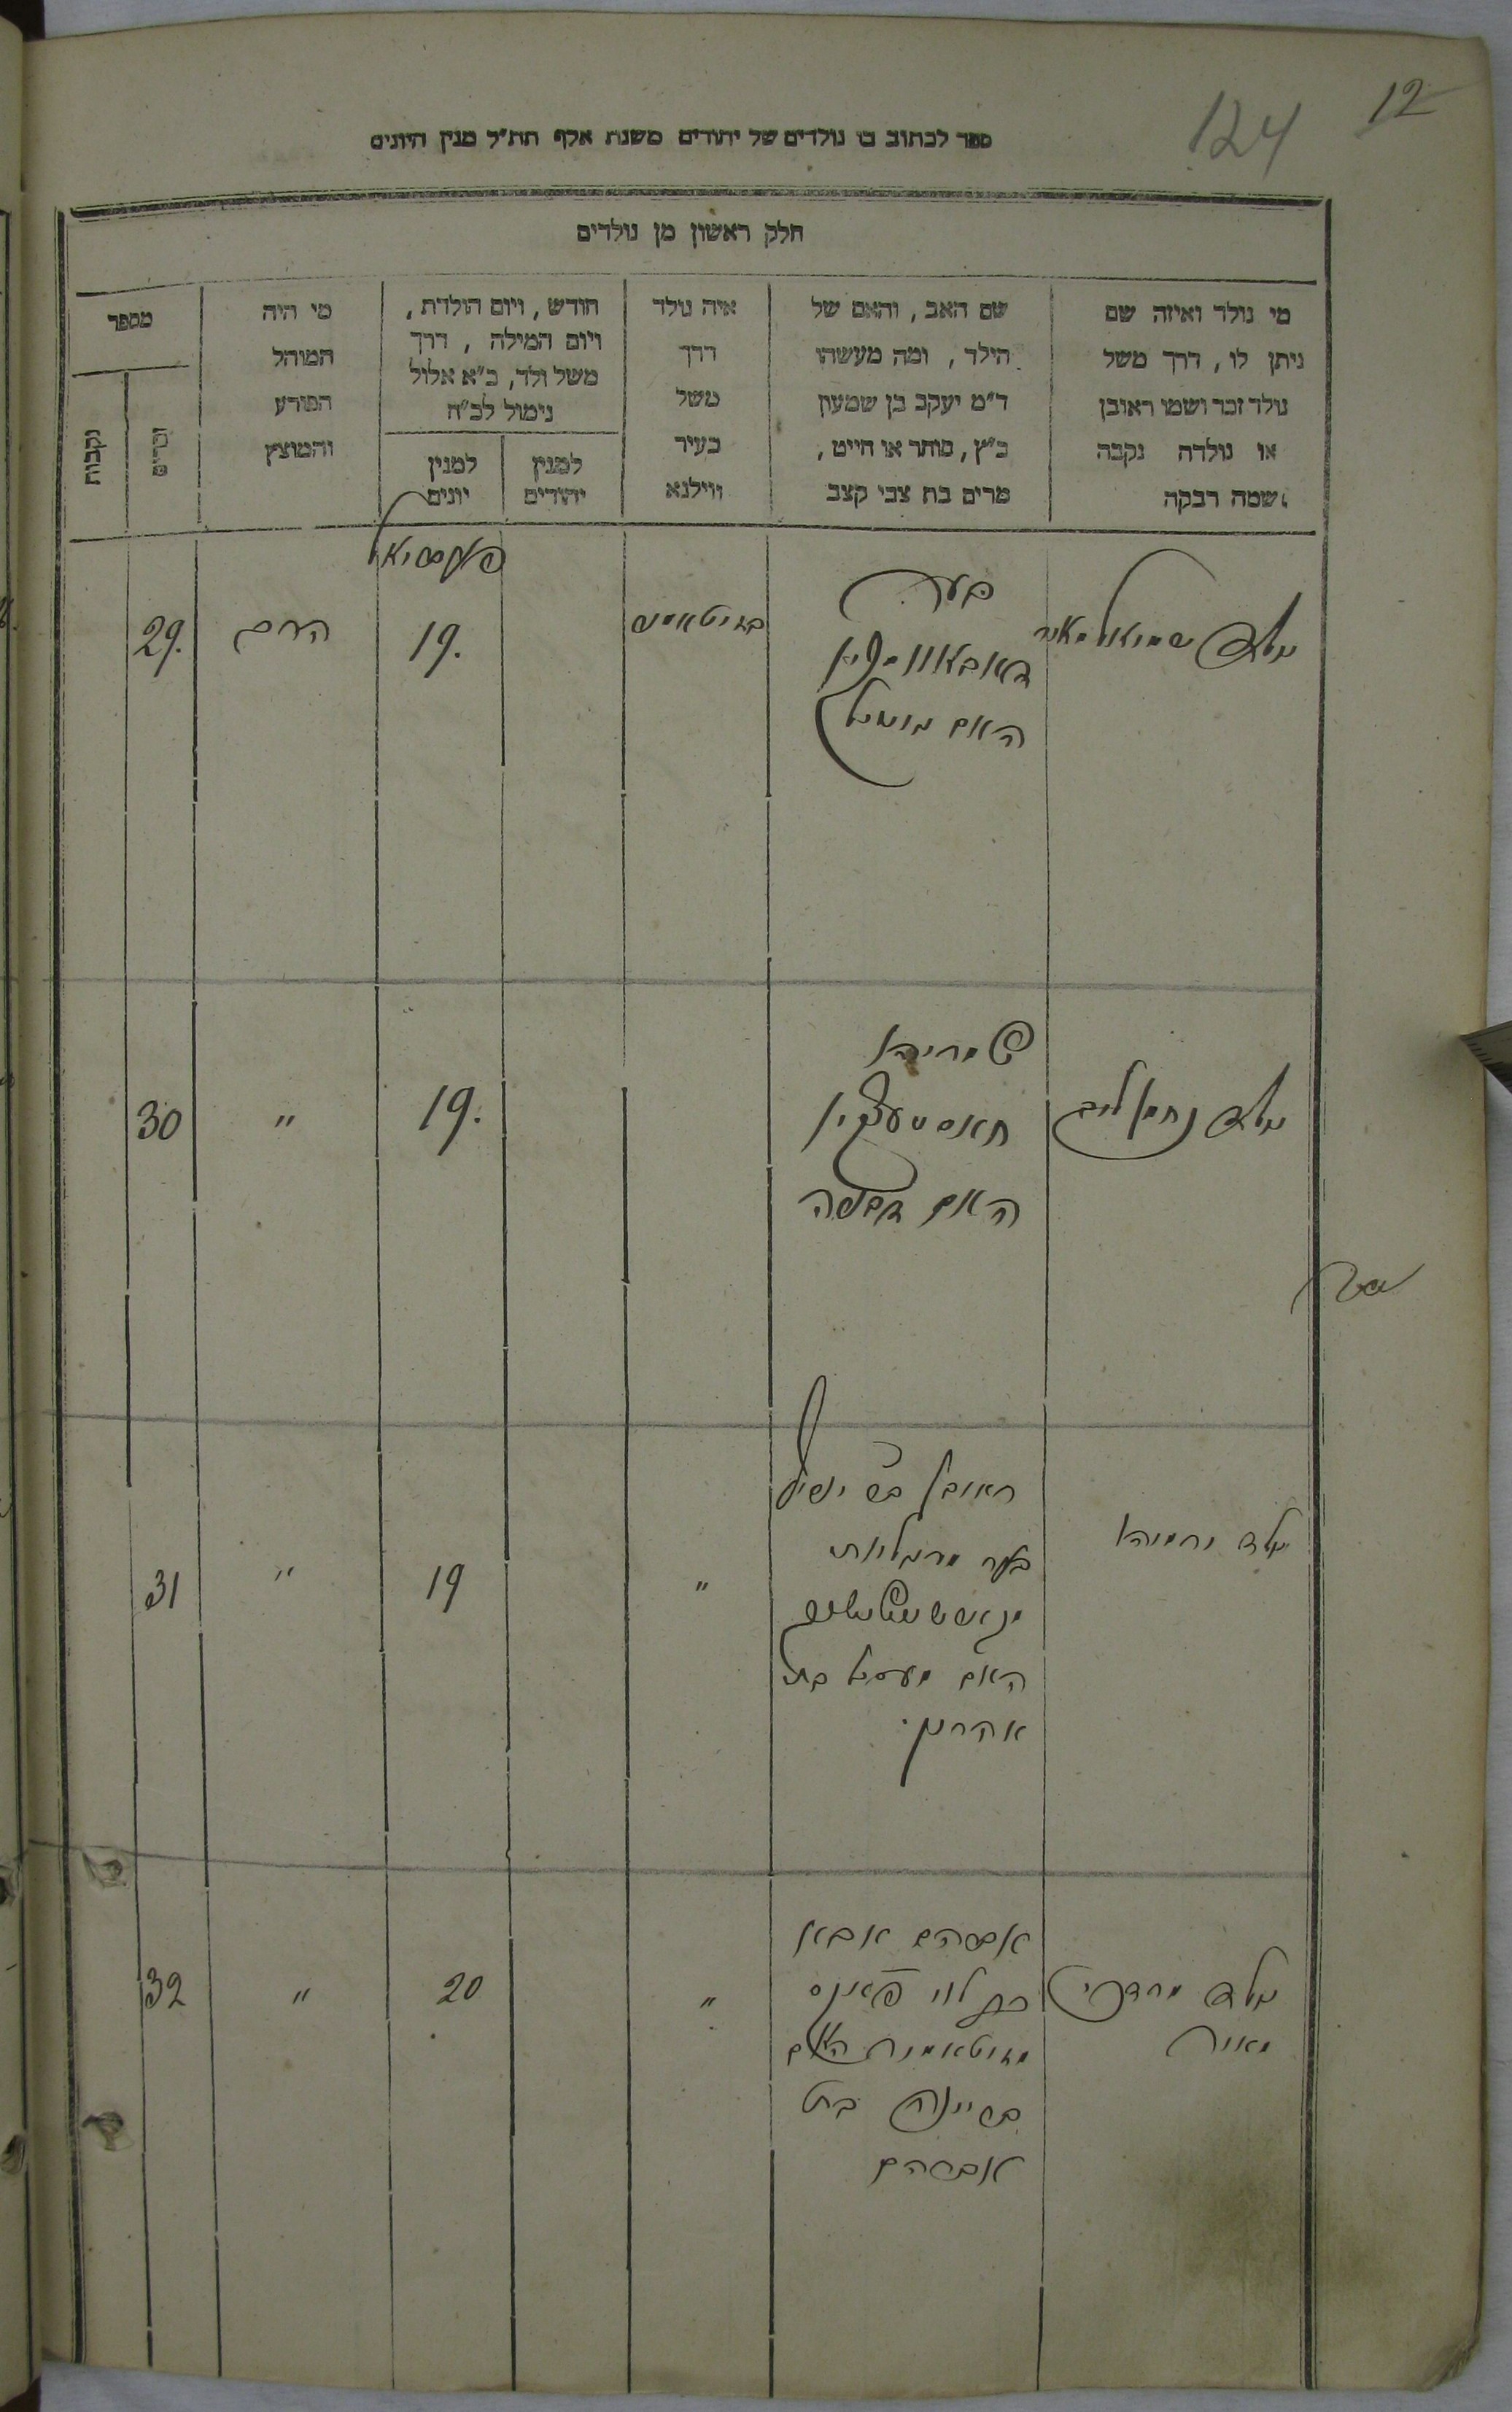 12
124
ספר לכתוב בו נולדים של יהודים משנת אלף תת״ל מנין היונים
חלק ראשון מן נולדים
מי נולד ואיזה שם
ניתן לו, דרך משל
נולד זכר ושמו ראובן
או נולדה נקבה
ושמה רבקה
שם האב, והאם של
הילד, ומה מעשהו
ד״מ יעקב בן שמעון
כ״ץ, סוחר או חייט,
מרים בת צבי קצב
איה נולד
דרך
משל
בעיר
ווילנא
חודש, ויום הולדת,
ויום המילה, דרך
משל ולד, כ״א אלול
נימול לכ״ח
למנין
יהודים
למנין
יונים
מי היה
המוהל
הפורע
והמוצץ
מספר
זכרים
נקבות
נולד שמואל מאיר
בער
האם
זיטאמיר
19.
הרב
29.
נולד נחמן ליב
שמריהו
האם
19.
״
30
נולד ירמיהו
ראובן
האם בת
אהרון.
״
19
״
31
נולד מרדכי
מאיר
אברהם אבא
בן לוי
מזיטאמיר האם
בריינה בת
אברהם
״
20
״
32